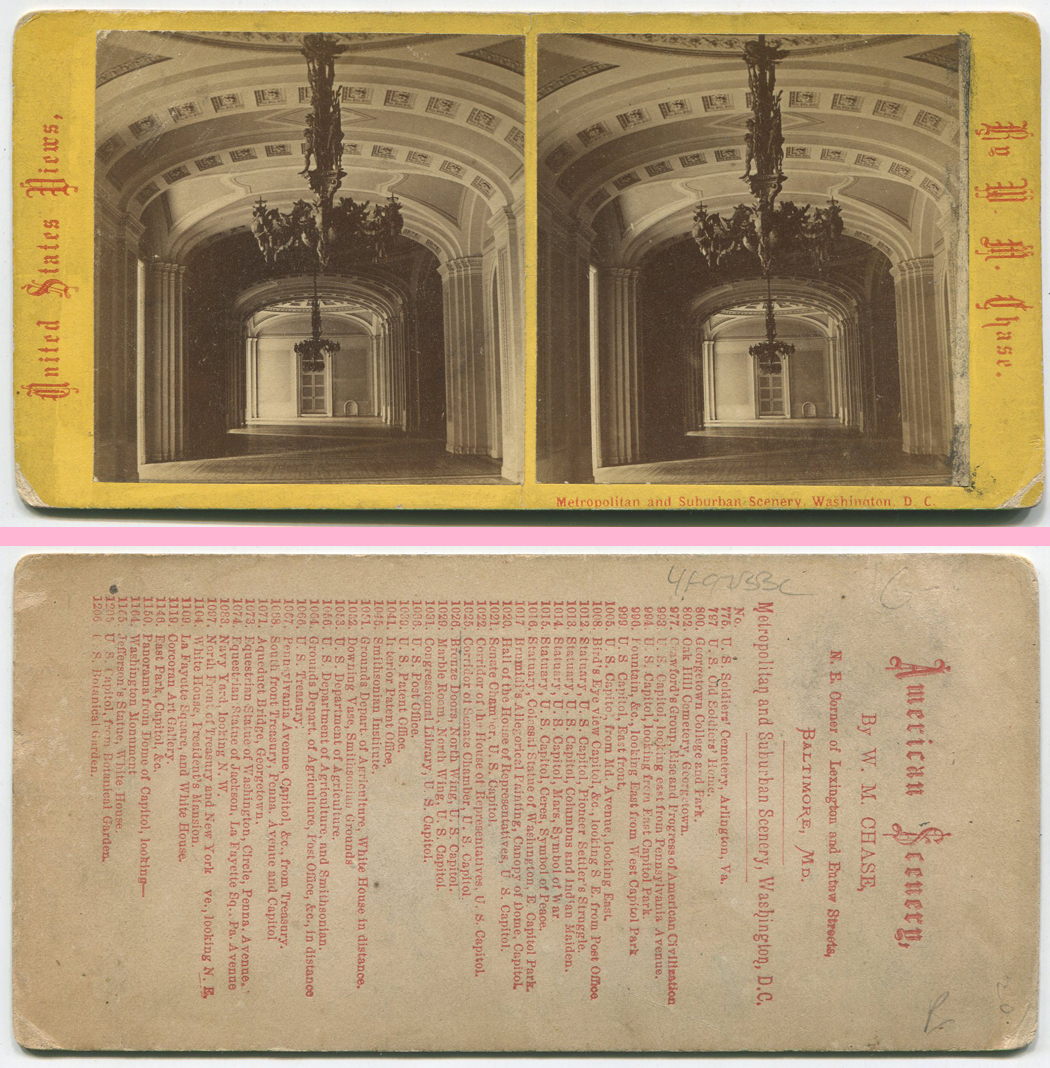 United States Views,
By W. M. Chase.
Metropolitan and Suburban Scenery, Washington, D. C.
American Scenery,
By W. M. CHASE,
N. E. Corner of Lexington and Eutaw Streets,
BALTIMORE, MD.
Metropolitan and Suburban Scenery, Washington, D.C.
No.
775. U. S. Soldiers' Cemetery, Arlington, Va.
797. U. S. Old Soldiers' Home.
800. Georgetown College and Park.
802. Oak Hill Cemetery, Georgetown.
977. Crawford's Group, Rise and Progress of American Civilization
993. U. S. Capitol, looking east from Pennsylvania Avenue.
994. U. S. Capitol, looking from East Capitol Park.
996. Fountain, &c., looking East from West Capitol Park
999. U. S. Capitol, East front.
1005. U. S. Capitol, from Md. Avenue, looking East.
1008. Bird's Eye View Capitol, &c., looking S E. from Post Office.
1012. Statuary, U. S. Capitol, Pioneer Settler's Struggle.
1013. Statuary, U. S. Capitol, Columbus and Indian Maiden.
1014. Statuary, U. S. Capitol, Mars, Symbol of War.
1015. Statuary, U. S. Capitol, Ceres, Symbol of Peace.
1016. Statuary, Colossal Statue of Washington, E. Capitol Park.
1017. Brumidi's Allegorical Painting, Canopy of Dome, Capitol.
1020. Hall of the House of Representatives, U. S. Capitol.
1021. Senate Chamber, U. S. Capitol.
1022. Corridor of the House of Representatives, U. S. Capitol.
1025. Corridor of Senate Chamber, U. S. Capitol.
1026. Bronze Doors, North Wing, U. S. Capitol.
1029. Marble Room, North Wing, U. S. Capitol.
1031. Congressional Library, U. S. Capitol.
U. S. Post Office.
U. S. Patent Office.
1041. Interior Patent Office.
1045. Smithsonian Institute.
Grounds Department of Agriculture, White House in distance.
1052. Downing Vase, Smithsonian Grounds
1053. U. S. Department of Agriculture.
U. S. Department of Agriculture, and Smithsonian.
1064. Grounds Depart. of Agriculture, Post Office, &c., in distance
1066. U. S. Treasury.
1067. Pennsylvania Avenue, Capitol, &c., from Treasury.
1068. South front Treasury, Penna. Avenue and Capitol
1071. Aqueduct Bridge, Georgetown.
1073. Equestrian Statue of Washington, Circle, Penna. Avenue.
1074. Equestrian Statue of Jackson, La Fayette Sq., Pa. Avenue
Navy Yard, looking N. W.
1097. North Front of Treasury and New York ve., looking N. E.
1104. White House, President's Mansion.
1109. La Fayette Square, and White House.
1119. Corcoran Art Gallery.
1146. East Park, Capitol, &c.
1150. Panorama from Dome of Capitol, looking—
1164. Washington Monument
1165. Jefferson's Statue, White House.
1205 U. S. Capitol, from Botanical Garden.
1206 U. S. Botanical Garden.